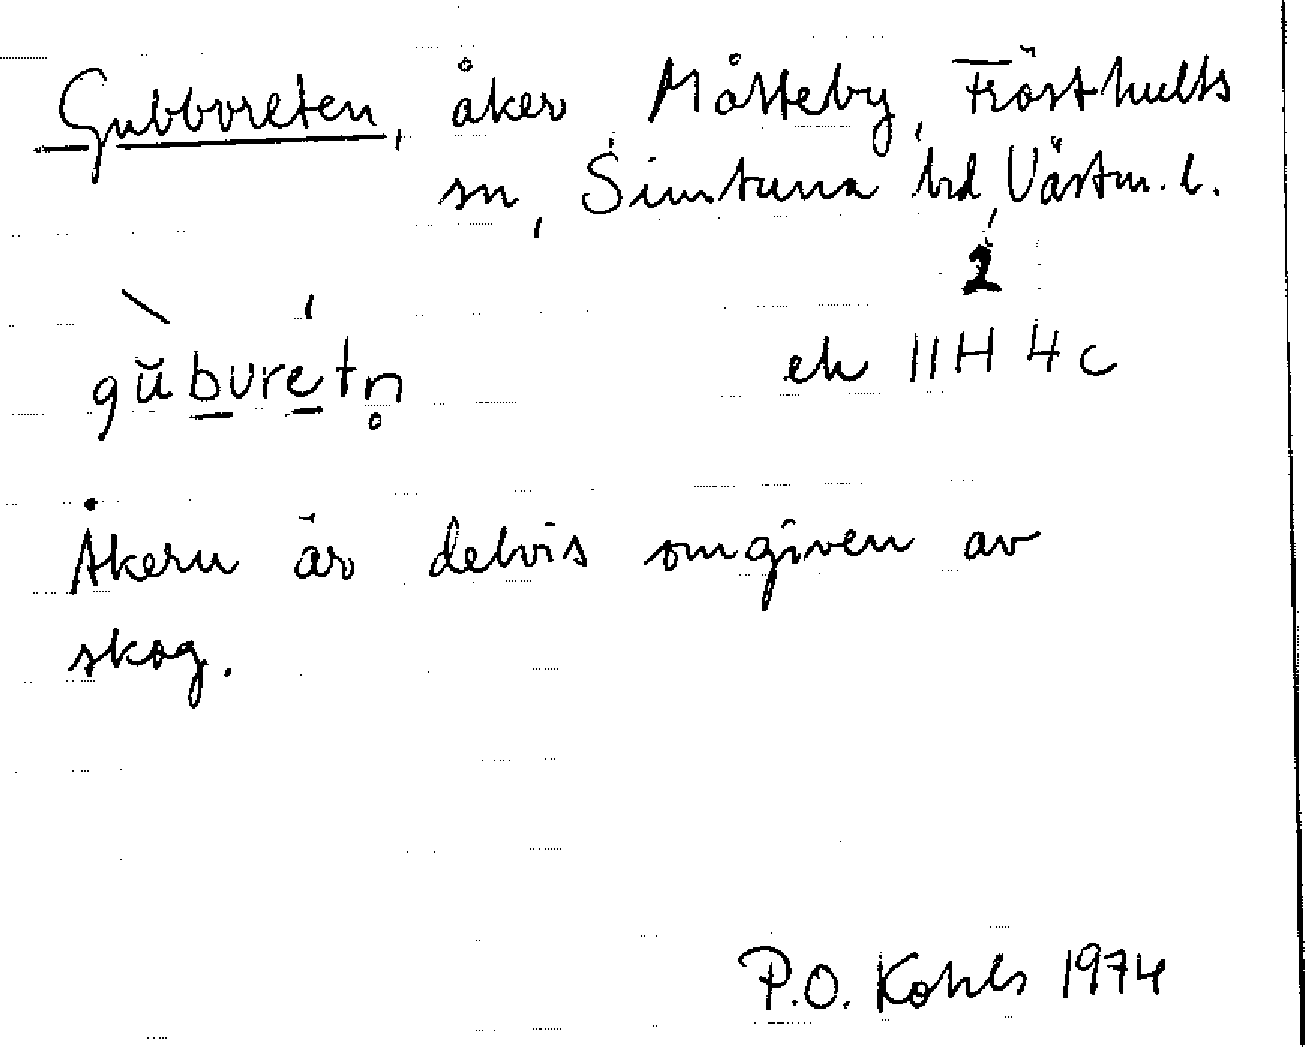 Gubboreten, åker Måtteby, Frösthults
sn, Simtuna hd, Västm. l.
2
gŭburétn̥
ek 11H 4c
Åkern är delvis omgiven av
skog.
P.O. Kohls 1974